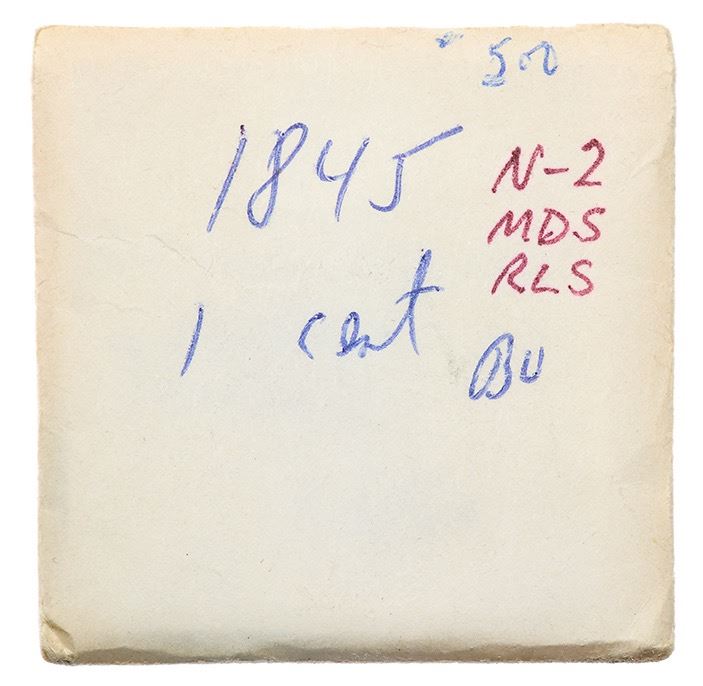 500
1845
N-2
MDS
RLS
1 cent
BU